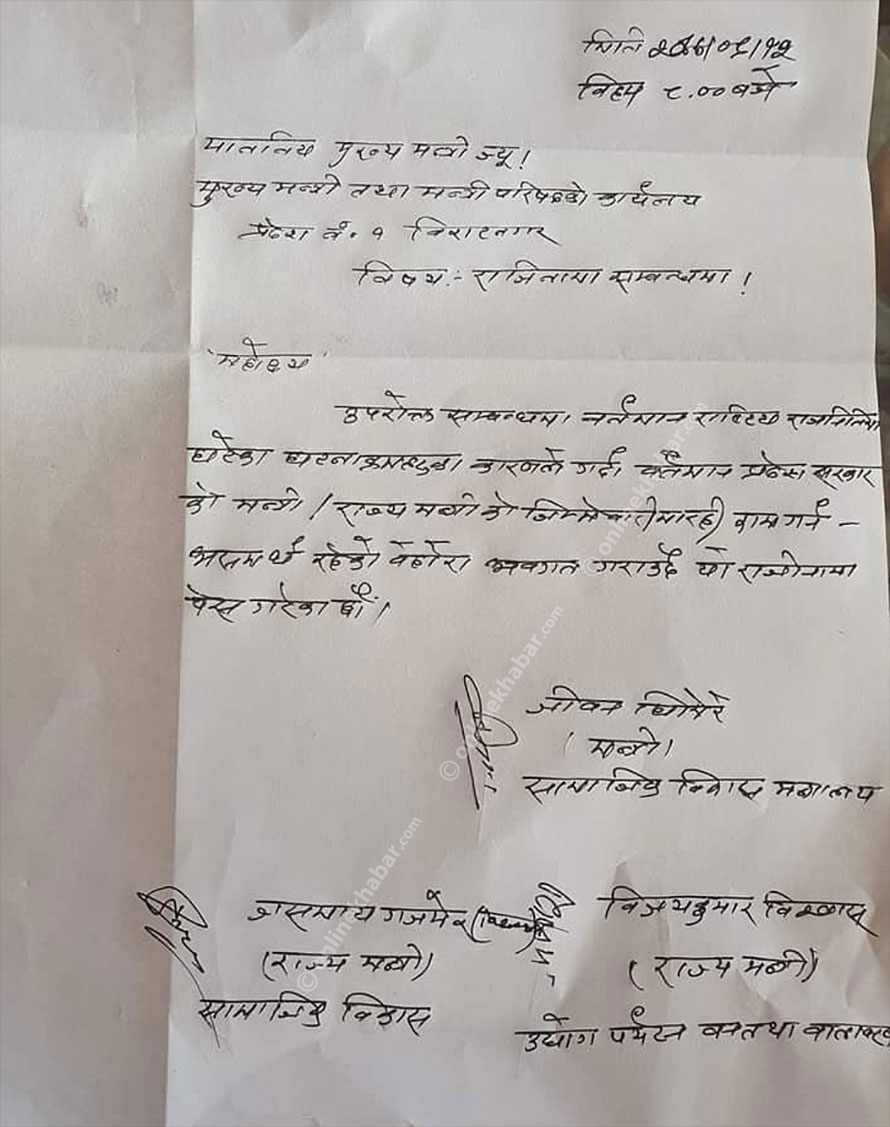 मिति २०७७/०९/१२
विहान ८.०० बजे
माननिय मुख्य मन्त्री ज्यू!
मुख्य मन्त्री तथा मन्त्री परिषदको कार्यलय
प्रदेश नं. १ विराटनगर
विषय:- राजिनामा सम्बन्धमा!
महोदय
उपरोक्त सम्बन्धमा वर्तमान राष्ट्रिय राजनितिमा
घटेका घटनाक्रमहरुका कारणले गर्दा वर्तमान प्रदेश सरकार
को मन्त्री / राज्य मन्त्री को जिम्मेवारीमा रही काम गर्न -
असमर्थ रहेको वेहोरा अवगत गराउदै यो राजीनामा
पेस गरेका छौं।
जीवन घिमिरे
(मन्त्री)
सामाजिक विकास मन्त्रालय
जसमाय गजमेर
(राज्य मन्त्री)
सामाजिक विकास
विजयकुमार विश्वास
(राज्य मन्त्री)
उद्योग पर्यटन वन तथा वातावरण
© onlinekhabar.com
© onlinekhabar.com
© onlinekhabar.com